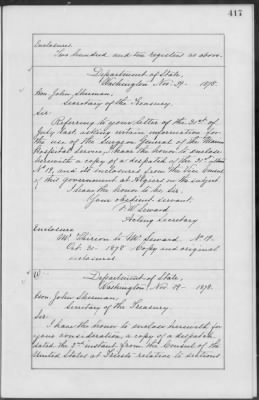 417
Enclosures.
Two hundred and ten registers as above.
Department of State,
Washington Nov. 1878.
Hon. John Sherman,
Secretary of the Treasury.
Sir:
Referring to your letter of the 31st of
July last asking certain information for
the use of the Surgeon General of the Marine
Hospital Service, I have the honor to enclose
herewith a copy of a despatch of the 31st
No. 19, and its enclosures from the Vice Consul
of this government at Algiers on the subject.
I have the honor to be, Sir,
Your obedient servant
F. W. Seward
Acting Secretary
Enclosures
Mr. to Mr. Seward. No. 19.
Oct. 31 - 1878 Copy and original
enclosures.
Department of State,
Washington, Nov. 1878.
Hon. John Sherman,
Secretary of the Treasury.
Sir:
I have the honor to enclose herewith for
your consideration, a copy of a despatch
dated the 2nd instant, from the Consul of the
United States at Trieste relative to